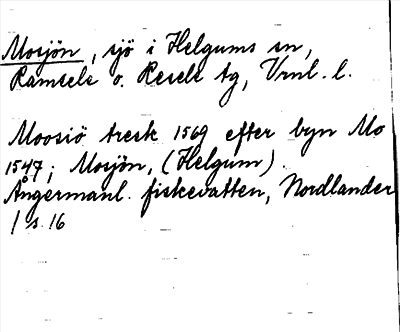 Mosjön, sjö i Helgums sn,
Ramsele o. Resele tg, Vrnl. l.
Moosiö tresk 1569 efter byn Mo
1547; Mosjön, (Helgum).
Ångermanl. fiskevatten, Nordlander
1 s. 16